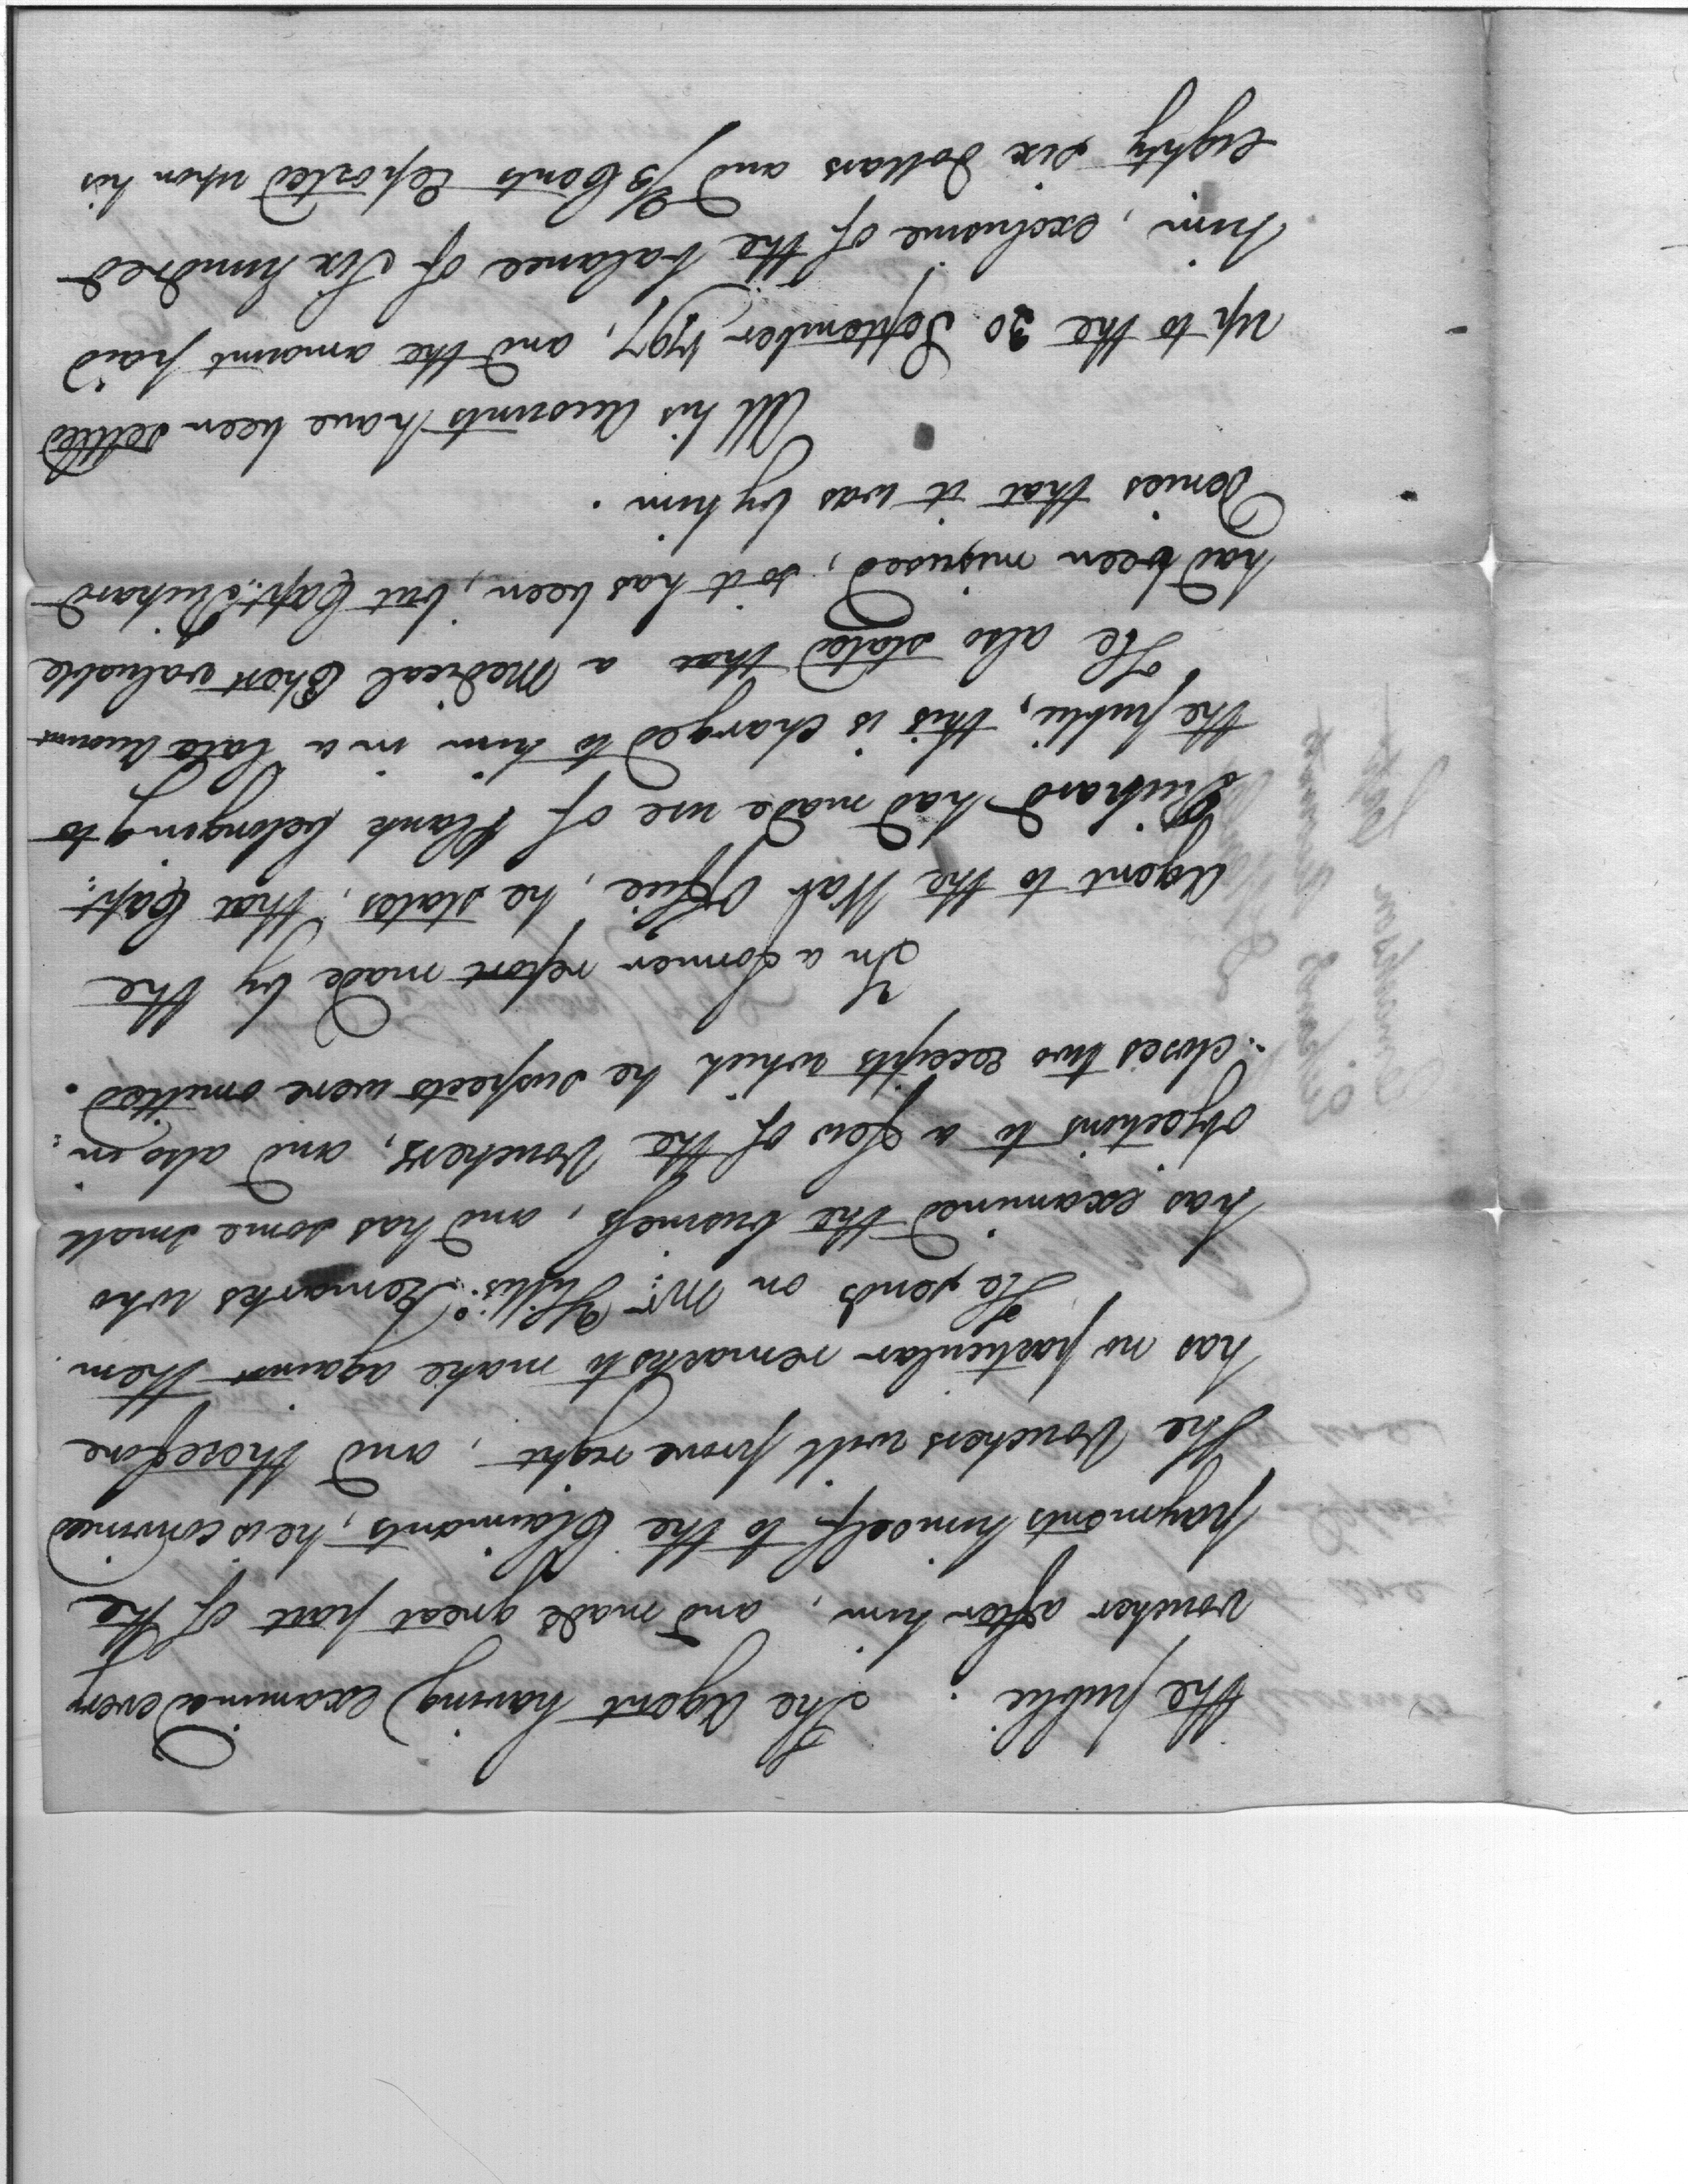 the public. The Agent having examined every
voucher after him, and made great part of the
payments himself to the Claimants, he is convinced
the Vouchers will prove right, and therefore
has no particular remarks to make against them.
He sends on Mr: Remarks who
has examined the business, and has some small
objections to a few of the Vouchers, and also en:
:closes two receipts which he suspects were omitted.
In a former report made by the
Agent to the War Office, he states, that Capt:
had made use of Plank belonging to
the public, this is charged to him in a late Account
He also stated that a Medical Chest valuable
had been misused, so it has been, but Capt:
Denies that it was by him.
All his Accounts have been settled
up to the 30 September 1797, and the amount paid
him, exclusive of the balance of Six hundred
eighty six dollars and 2/3 Cents reported upon his